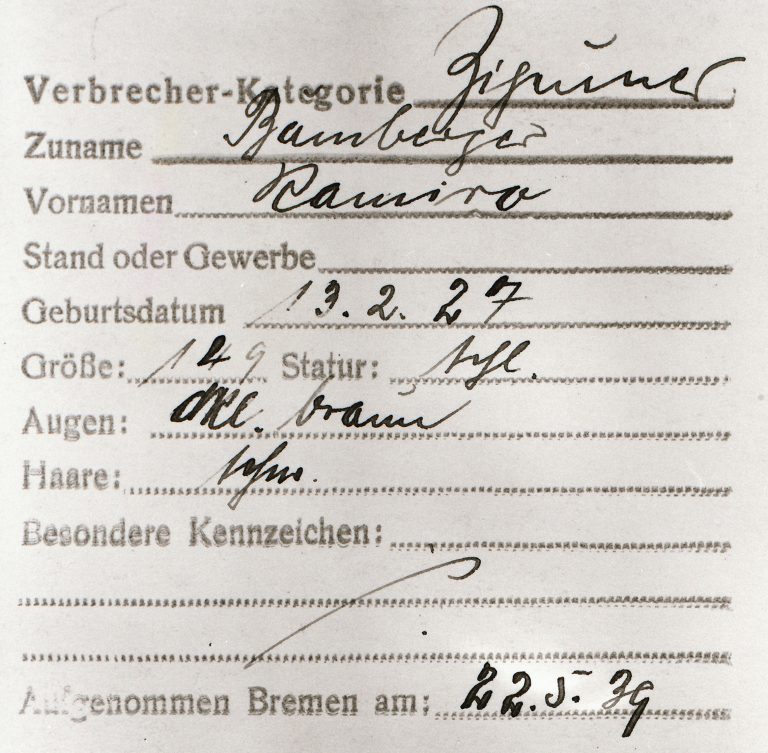 Verbrecher-Kategorie Zigeuner
Zuname Bamberger
Vornamen Ramiro
Stand oder Gewerbe
Geburtsdatum 13.2.27
Größe: 149 Statur: schl.
Augen: dkl. braun
Haare: schw.
Besondere Kennzeichen:
Aufgenommen Bremen am: 22.5.39